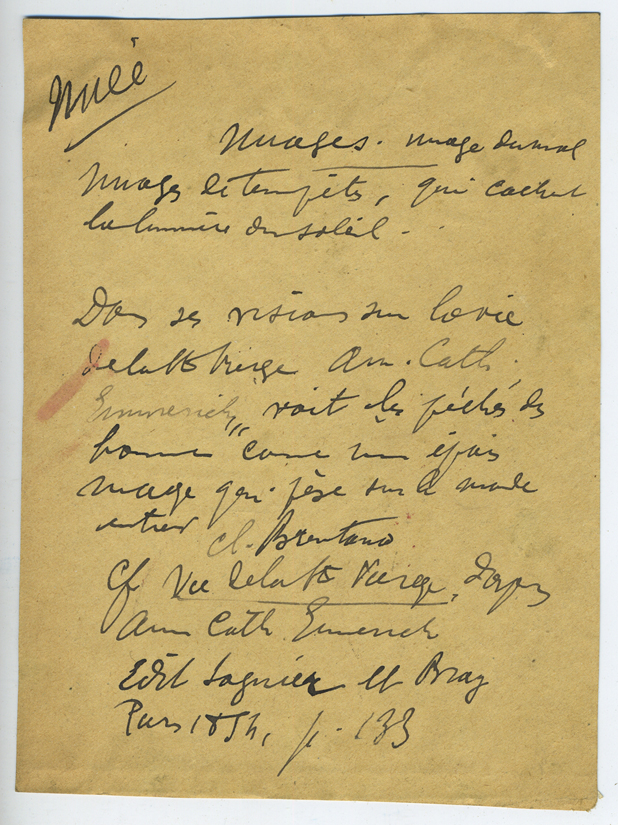 Nuée
Nuages. nuage du mal
Nuages de tempête, qui cachent
la lumière du soleil.
Dans ses visions sur la vie
de la Ste Vierge Ann. Cath.
Emmerich, voit les péchés des
hommes "comme un épais
nuage qui pèse sur le monde
entier
Cl. Brentano
Cf Vie de la Ste Vierge, d'après
Ann Cath Emmerich
Edit Sagnier et Bray
Paris 1854, p. 133